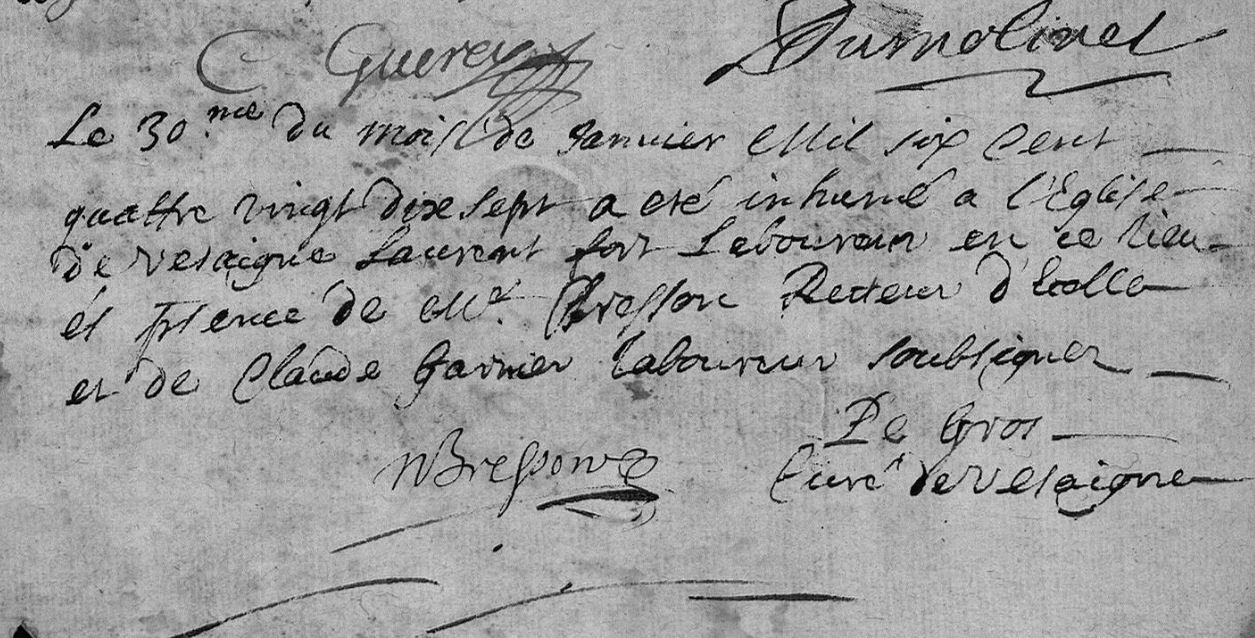 C Guerey Dumolinet
Le 30.me du mois de Janvier Mil six Cent
quattre vingt dix sept a eté inhumé a l'Eglise
de vesaigne Laurent fort Laboureur en ce lieu
et psence de Mr. Bresson Recteur d'Ecolle
et de Claude Garnier laboureur soubsignez
De Gros
NBresson Curé de vesaigne